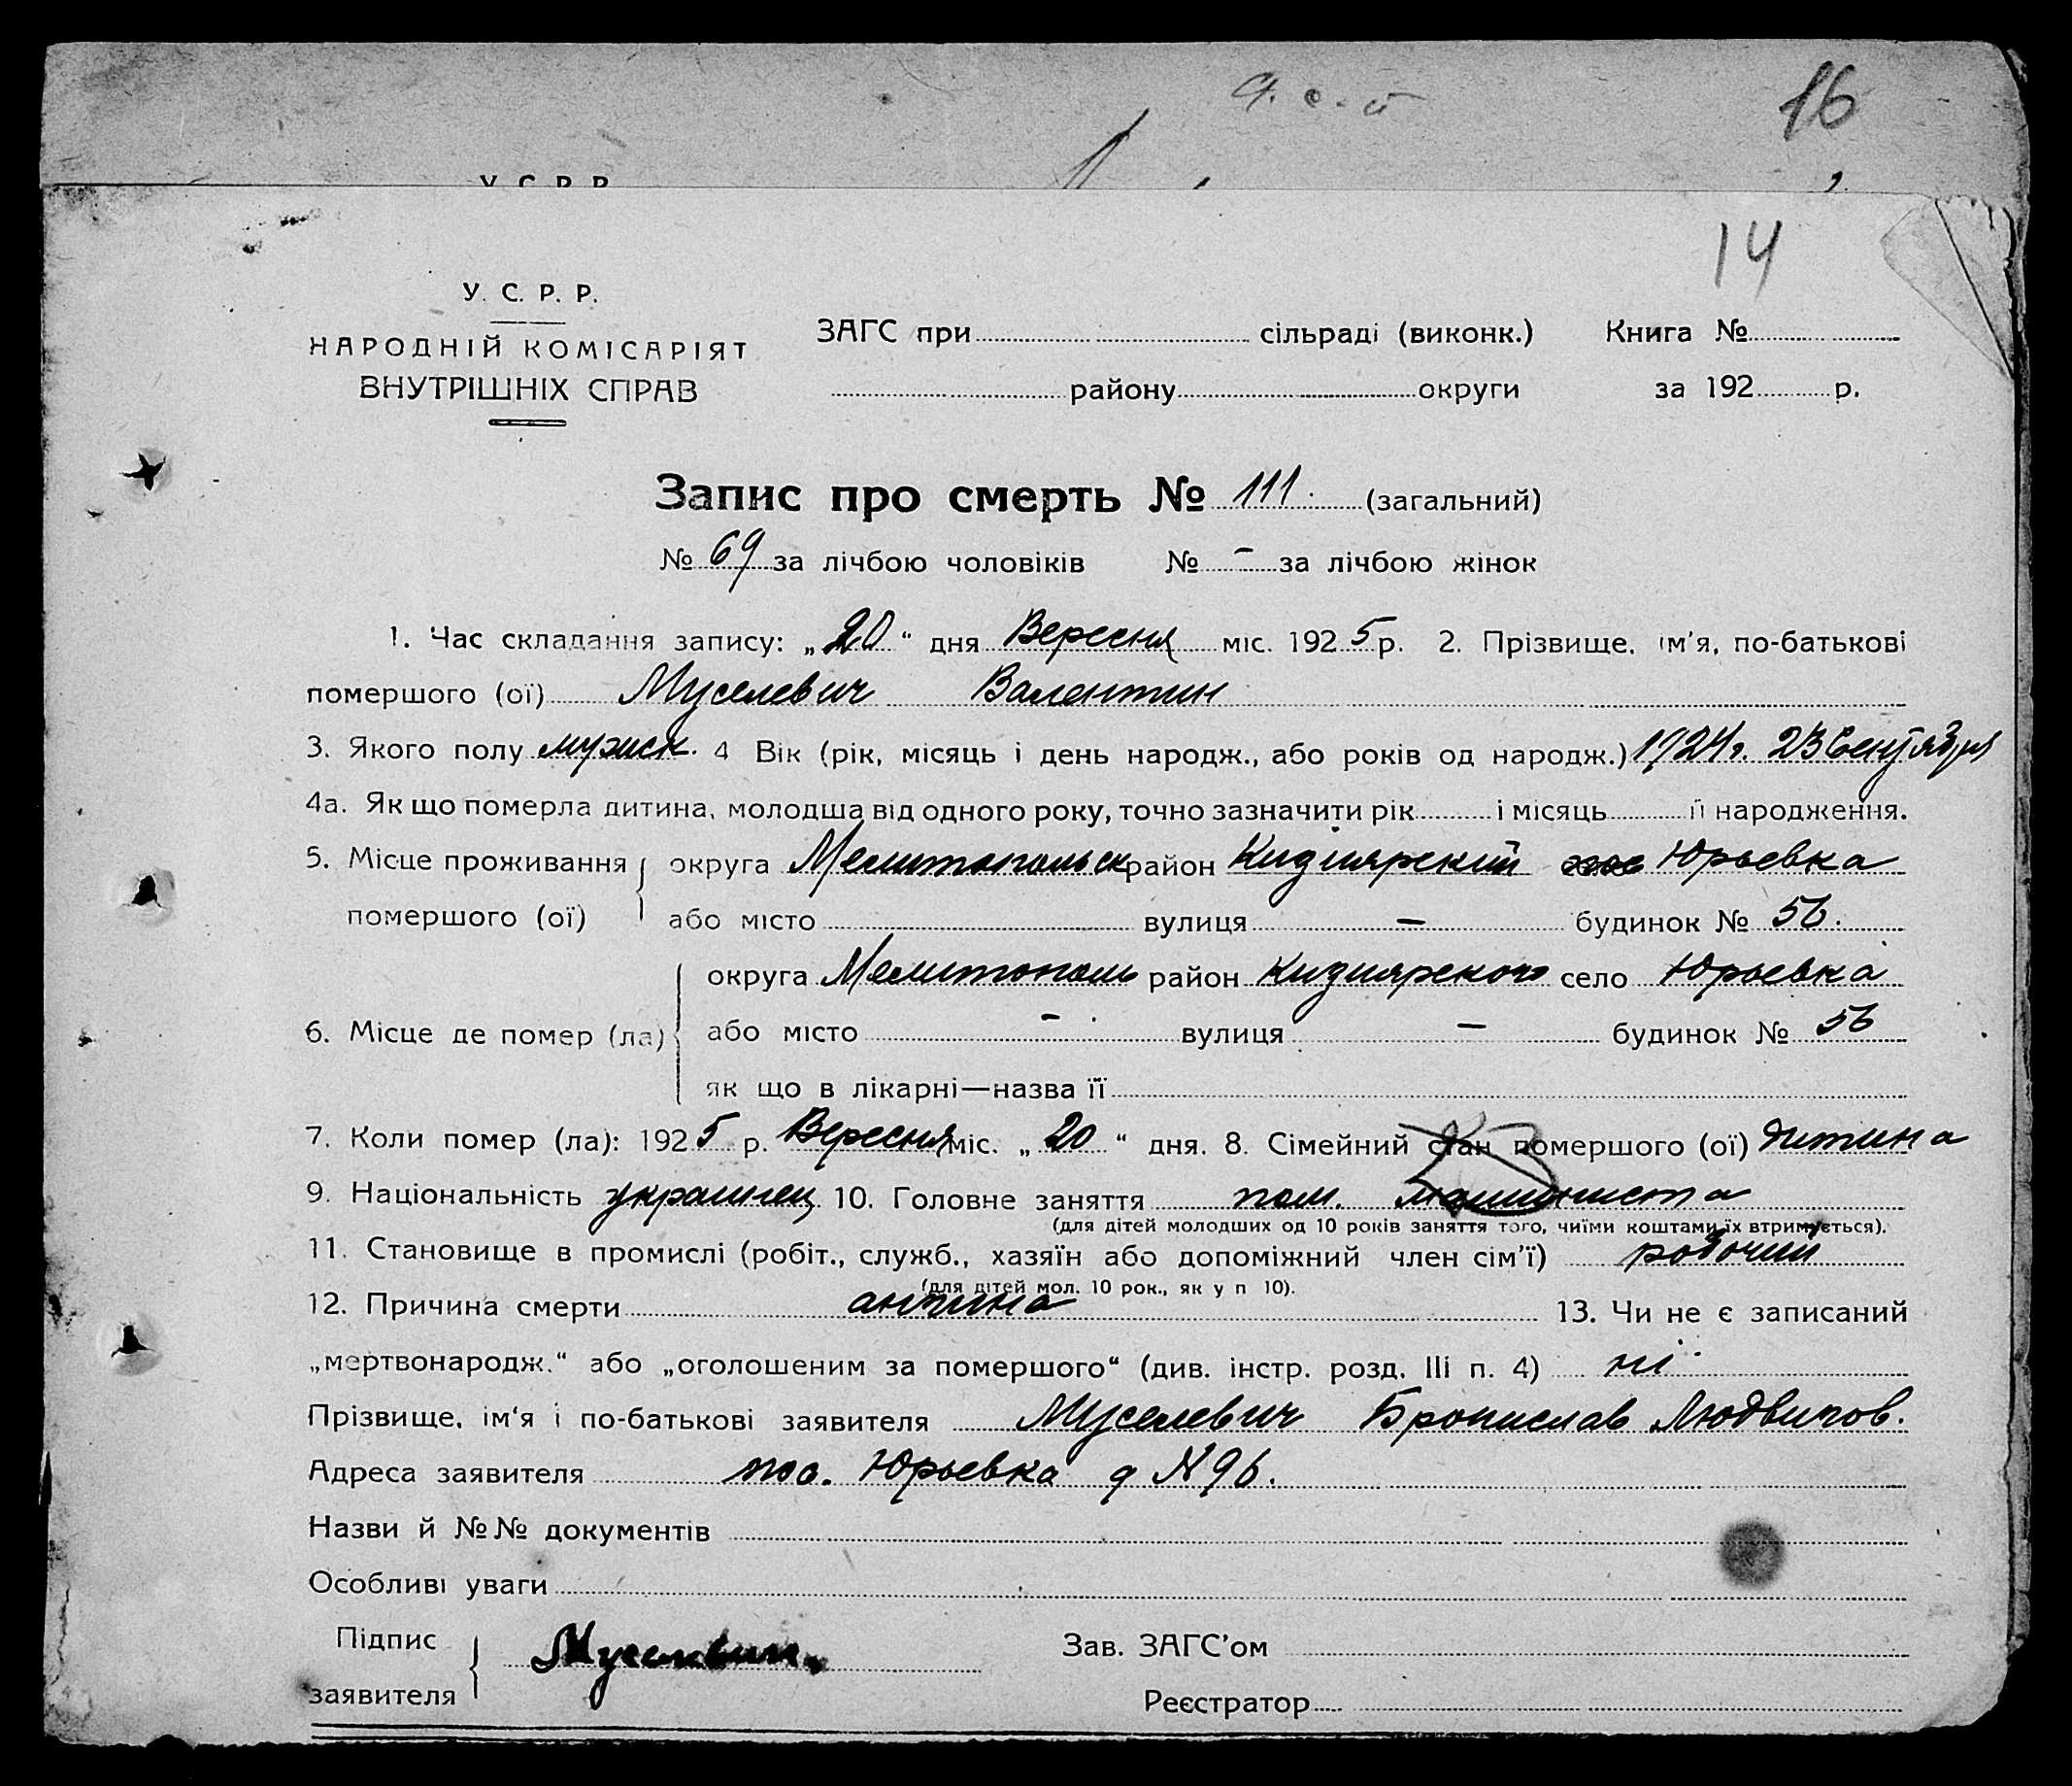 16
14
У. С. Р. Р.
НАРОДНІЙ КОМІСАРІЯТ
ВНУТРІШНІХ СПРАВ
ЗАГС при сільраді (виконк.) Книга №
району округи за 192 р.
Запис про смерть № 111. (загальний)
№ 69 за лічбою чоловіків № – за лічбою жінок
1. Час складання запису: „20“ дня Вересня міс. 1925 р. 2. Прізвище, ім'я, по-батькові
помершого (ої) Муселевич Валентин
3. Якого полу мужск. 4 Вік (рік, місяць і день народж., або років од народж.) 1924 г. 23 Сентября
4а. Як що померла дитина, молодша від одного року, точно зазначити рік і місяць її народження.
5. Місце проживання округа Мелитопольск район Кизиярский Юрьевка
помершого (ої) або місто вулиця – будинок № 56.
округа Мелитополь район Кизиярского село Юрьевка
6. Місце де помер (ла) або місто – вулиця – будинок № 56
як що в лікарні—назва її
7. Коли помер (ла): 1925 р. Вересня міс. „20“ дня. 8. Сімейний стан помершого (ої) дитина
9. Національність украинец 10. Головне заняття пом. машиниста
(для дітей молодших од 10 років заняття того, чиїми коштами їх втримується).
11. Становище в промислі (робіт., служб., хазяїн або допоміжний член сім'ї) робочий
(для дітей мол. 10 рок., як у п 10).
12. Причина смерти ангина 13. Чи не є записаний
„мертвонародж.“ або „оголошеним за помершого“ (див. інстр. розд. III п. 4) ні
Прізвище, ім'я і по-батькові заявителя Муселевич Бронислав Людвигов.
Адреса заявителя пос. Юрьевка д N 96.
Назви й №№ документів
Особливі уваги
Підпис заявителя Мусилевич. Зав. ЗАГС'ом
Реєстратор